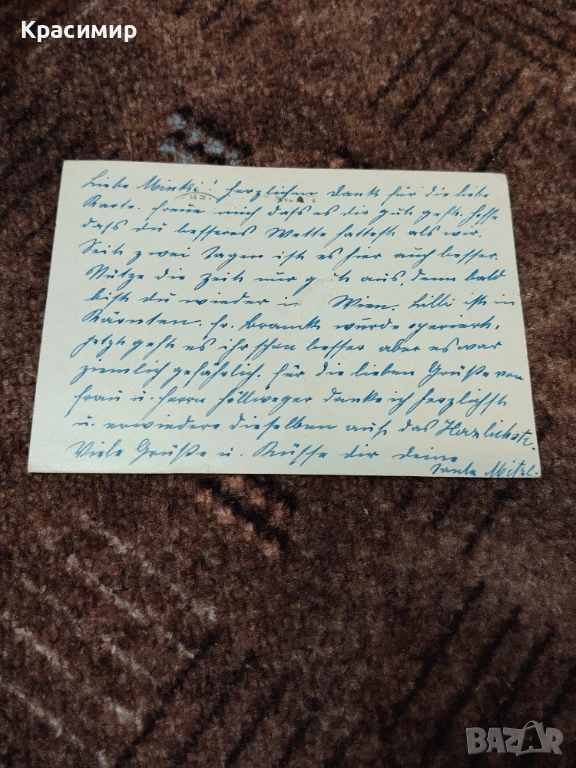 Красимир
Liebe Minki! Herzlichen Dank für die liebe
Karte. Freue mich dass es dir gut geht. Hoffe
dass du besseres Wetter hattest als wir.
Seit zwei Tagen ist es hier auch besser.
Nütze die Zeit nur gut aus, denn bald
bist du wieder in Wien. Lilli ist in
Kärnten. Fr. wurde operiert.
Jetzt geht es ihr schon besser aber es war
ziemlich gefährlich. Für die lieben Grüße von
Frau u. Herrn Höllweger danke ich herzlichst
u. erwiedere dieselben aufs das Herzlichste.
Viele Grüße u. Küsse dir deine
Tante Mitzl.
BAZAR